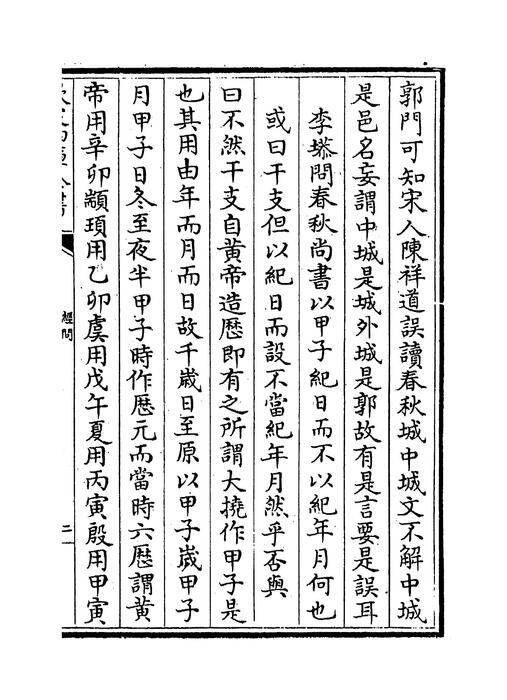 郭門可知宋人陳祥道誤讀春秋城中城文不解中城
是邑名妄謂中城是城外城是郭故有是言要是誤耳
李塨問春秋尚書以甲子紀日而不以紀年月何也
或曰干支但以紀日而設不當紀年月然乎否與
曰不然干支自黄帝造歴即有之所謂大撓作甲子是
也其用由年而月而日故千嵗日至原以甲子嵗甲子
月甲子日冬至夜半甲子時作歴元而當時六歴謂黄
帝用辛卯顓頊用乙卯虞用戊午夏用丙寅殷用甲寅
經問
二